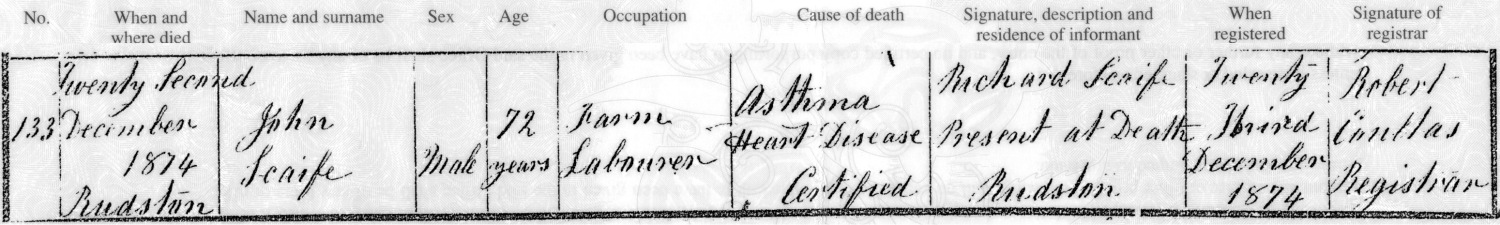 No.
When and
where died
Name and surname
Sex
Age
Occupation
Cause of death
Signature, description and
residence of informant
When
registered
Signature of
registrar
133
Twenty Second
December
1874
Rudston
John
Scaife
Male
72
years
Farm
Labourer
Asthma
Heart Disease
Certified
Richard Scaife
Present at Death
Rudston
Twenty
Third
December
1874
Robert
Registrar